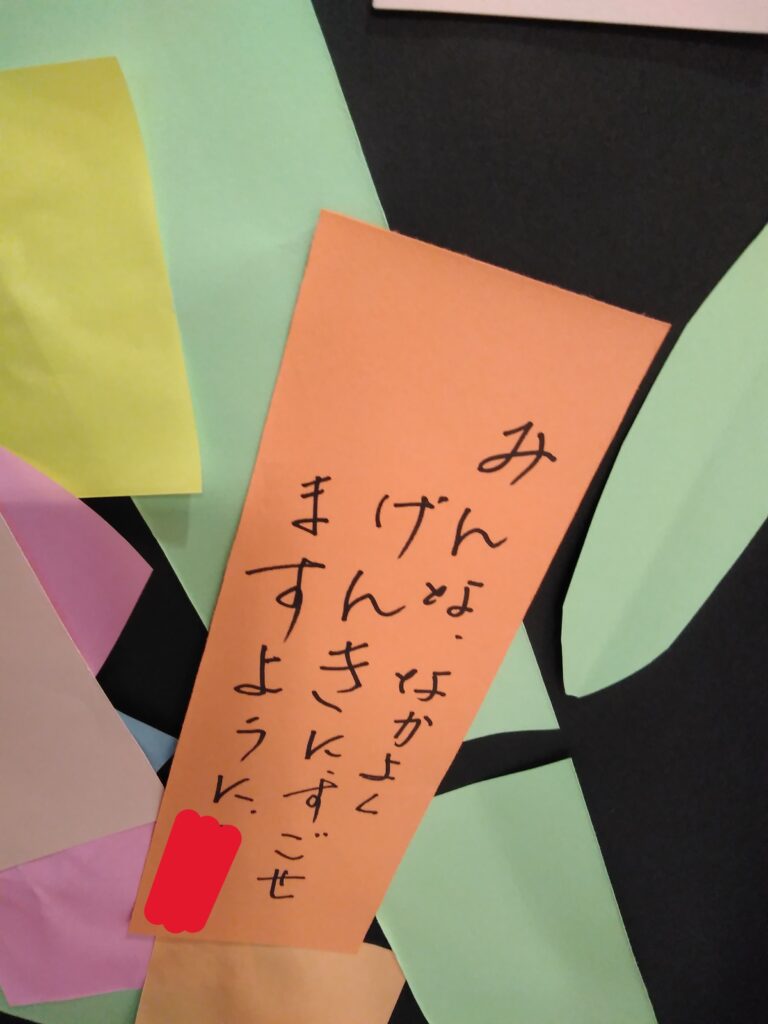 みんな、なかよく
げんきにすごせ
ますように。